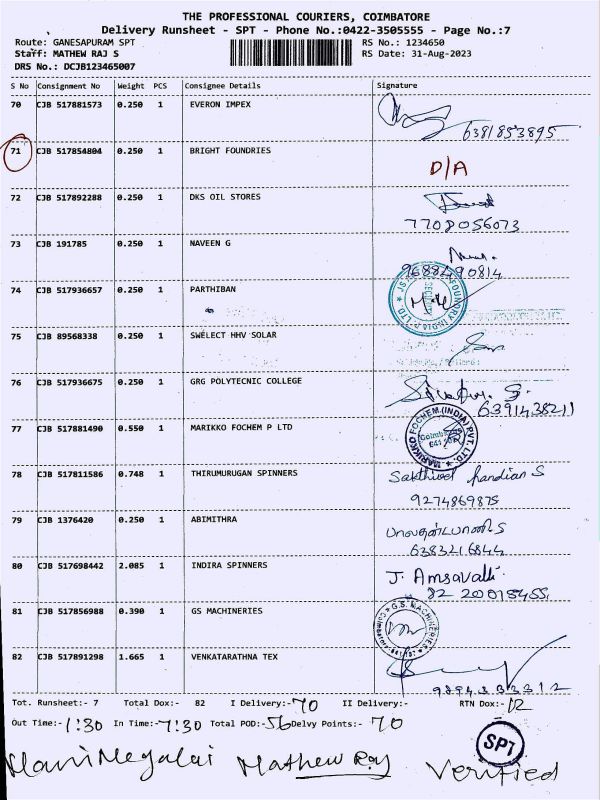 THE PROFESSIONAL COURIERS, COIMBATORE
Delivery Runsheet - SPT - Phone No.:0422-3505555 - Page No.:7
Route: GANESAPURAM SPT RS No.: 1234650
Staff: MATHEW RAJ S RS Date: 31-Aug-2023
DRS No.: DCJB123465007
S No Consignment No Weight PCS Consignee Details Signature
70 CJB 517881573 0.250 1 EVERON IMPEX
6381853895
71 CJB 517854804 0.250 1 BRIGHT FOUNDRIES
D/A
72 CJB 517892288 0.250 1 DKS OIL STORES
7708056073
73 CJB 191785 0.250 1 NAVEEN G
9688490814
74 CJB 517936657 0.250 1 PARTHIBAN
75 CJB 89568338 0.250 1 SWELECT HHV SOLAR
76 CJB 517936675 0.250 1 GRG POLYTECNIC COLLEGE
6391438211
77 CJB 517881490 0.550 1 MARIKKO FOCHEM P LTD
MARIKKO FOCHEM (INDIA) PVT. LTD.
78 CJB 517811586 0.748 1 THIRUMURUGAN SPINNERS Sakthivel Pandian S
9274869875
79 CJB 1376420 0.250 1 ABIMITHRA
6383216844
80 CJB 517698442 2.085 1 INDIRA SPINNERS J. Amsavalli
81 CJB 517856988 0.390 1 GS MACHINERIES
G.S. MACHINERIES
82 CJB 517891298 1.665 1 VENKATARATHNA TEX
Tot. Runsheet:- 7 Total Dox:- 82 I Delivery:- 70 II Delivery:- RTN Dox:- 12
Out Time:- 1:30 In Time:- 7:30 Total POD:- 56 Delvy Points:- 70
ManiMegalai Mathew Raj Verified
SPT